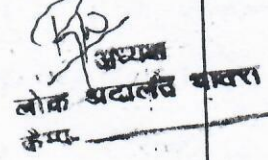 अध्यक्ष
लोक अदालत
कैम्प-